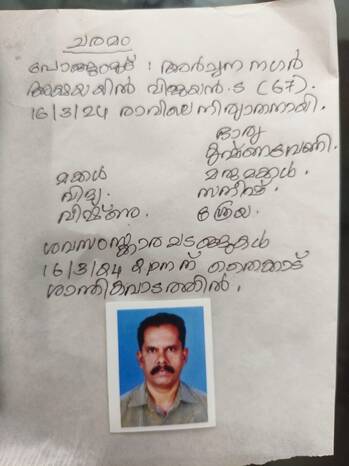 ചരമം
പോങ്ങുംമൂട് : അർച്ചന നഗർ
അക്ഷയയിൽ വിജയൻ. ട (67).
16/3/24 രാവിലെ നിര്യാതനായി.
ഭാര്യ
കൃഷ്ണവേണി.
മക്കൾ മരുമക്കൾ.
വിദ്യ. സനീഷ്.
വിഷ്ണു. ശ്രേയ.
ശവസംസ്ക്കാര ചടങ്ങുകൾ
16/3/24 2 pm ന് തൈക്കാട്
ശാന്തികവാടത്തിൽ.